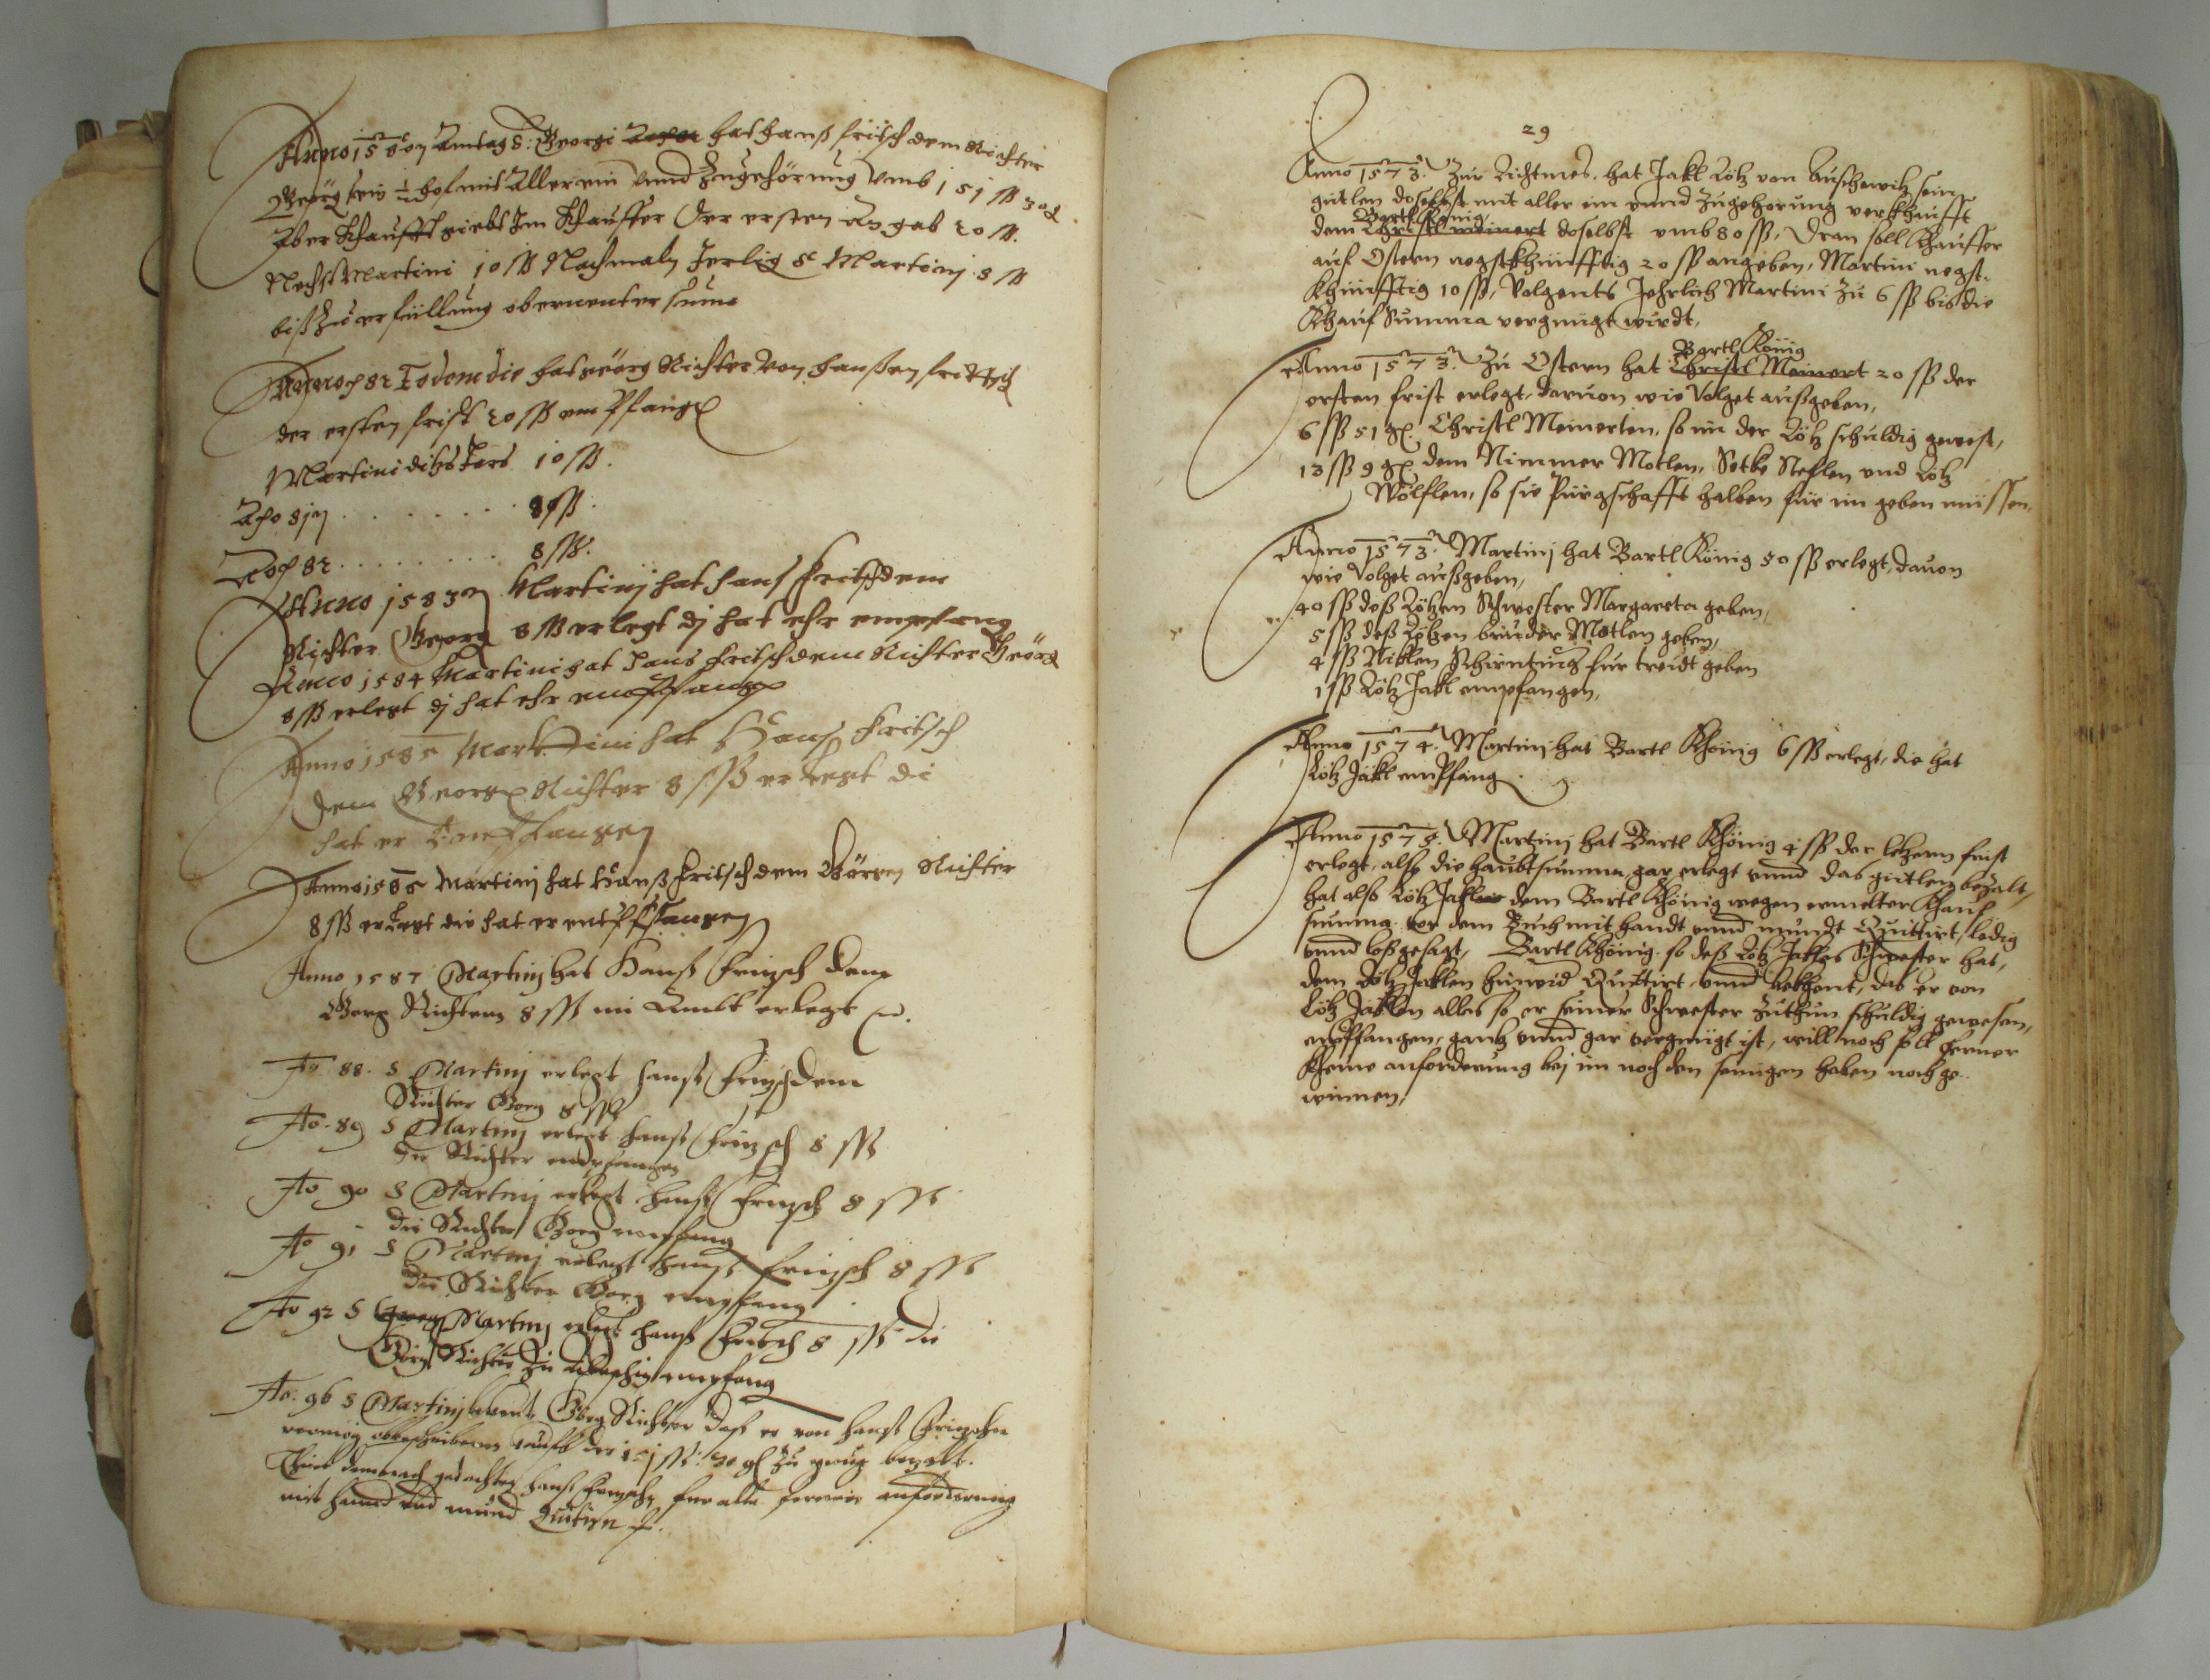 Anno 1580 Am tag S: Georgi hat hanß fritsch dem Richter
Georg sein ½ hof mit Aller ein vnnd Zugehörung vmb 151 ßß 30 g
der ersten An gab 20 ßß.
Martini 10 ßß Nachmaln Jerlig S Martinj 8 ßß
biß Zu erfüllung obernenter sum̄e
Eodem die hat Georg Richter von hanßen fritsch
der ersten frist 20 ßß empfangen
Martini ditzs Jars 10 ßß.
8 ßß.
8 ßß.
Anno 1583 Martinj hat hans fritsch dem
Richter Georg 8 ßß erlegt dj hat ehr empfang
Anno 1584 Martini hat hans fritsch dem Richter Geörg
8 ßß erlegt dj hat ehr empffangen
Anno 1585 Martini hat Hans fritsch
dem Georgen Richter 8 ßß erlegt di
hat er Empffangen
Anno 1586 Martinj hat Hanß fritsch dem Görgen Richter
8 ßß erlegt die hat er entpffangen
Anno 1587 Martinj hat Hanß Fritzsch dem
Georg Richtern 8 ßß im Ambt erlegt
Ao 88. S Martinj erlegt hanß Fritzsch dem
Richter Georg 8 ßß
Ao. 89 S Martinj erlegt hanß Fritzsch 8 ßß
die Richter entpfangen
Ao 90 S Martinj erlegt hanß Fritzsch 8 ßß
die Richter Georg empfang
Ao 91 S Martinj erlegt hanß Fritzsch 8 ßß
die Richter Georg empfang
Ao 92 S Martinj erlegt hanß Fritsch 8 ßß die
Görg Richter Zu empfang
Ao: 96 S Martinj bekent Georg Richter daß er von hanß Fritzschen
vermög obbeschribenen kauffs der 151 ßß: 30 gl Zu gnug bezalt.
Thut demnach gedachten hanß Fritzschen fur alle fernere anforderung
mit hannd vnd mund Quitirn
29
Anno 1573. Zur Lichtmes. hat Jakl Lötz von Auschowitz sein
gütlen doselbst mit aller ein vnnd Zugehorung verkhaufft
Bartl König
dem Christl Meinert doselbst vmb 80 ßß, dran soll Khauffer
auf Ostern negstkhünfftig 20 ßß angeben, Martini negst-
khünfftig 10 ßß, Volgents Jehrlich Martini Zu 6 ßß bis die
Khauf Summa vergnügt wirdt,
Bartl König
Anno 1573. Zu Ostern hat Christl Meinert 20 ßß der
ersten frist erlegt, daruon wie Volget außgeben,
6 ßß 51 g. Christl Meinerten, so im der Lötz schuldig gewest,
13 ßß 9 g. dem Nimmer Motlen, Steflen vnd Lötz
Wölflen, so sie Pürgschafft halben für im geben müssen.
Anno 1573. Martinj hat Bartl König 50 ßß erlegt, dauon
wie Volget außgeben,
40 ßß deß Lötzen Schwester Margareta geben,
5 ßß deß Lötzen bruder Motlen geben,
4 ßß Niklen für treidt geben
1 ßß Lötz Jakl empfangen,
Anno 1574. Martinj hat Bartl Khönig 6 ßß erlegt, die hat
Lötz Jakl empfang.
Anno 1575. Martinj hat Bartl Khönig 4 ßß der letzern frist
erlegt, also die haubtsumma gar erlegt vnnd das gütlen bezalt,
hat also Lötz Jakl dem Bartl Khönig wegen ermelter Khauf
summa vor dem Buch mit handt vnnd mundt Quittirt, ledig
vnnd loßgesagt, Bartl Khönig so deß Lötz Jakles Schwester hat,
dem Lötz Jaklen hinwid Quittirt vnnd bekhent, das er von
Lötz Jaklen alles so er seiner Schwester Zuthun schuldig gewesen,
empffangen, gantz vnnd gar vergnügt ist, will noch soll ferner
kheine anforderung bej im noch den seinigen haben noch ge-
winnen,